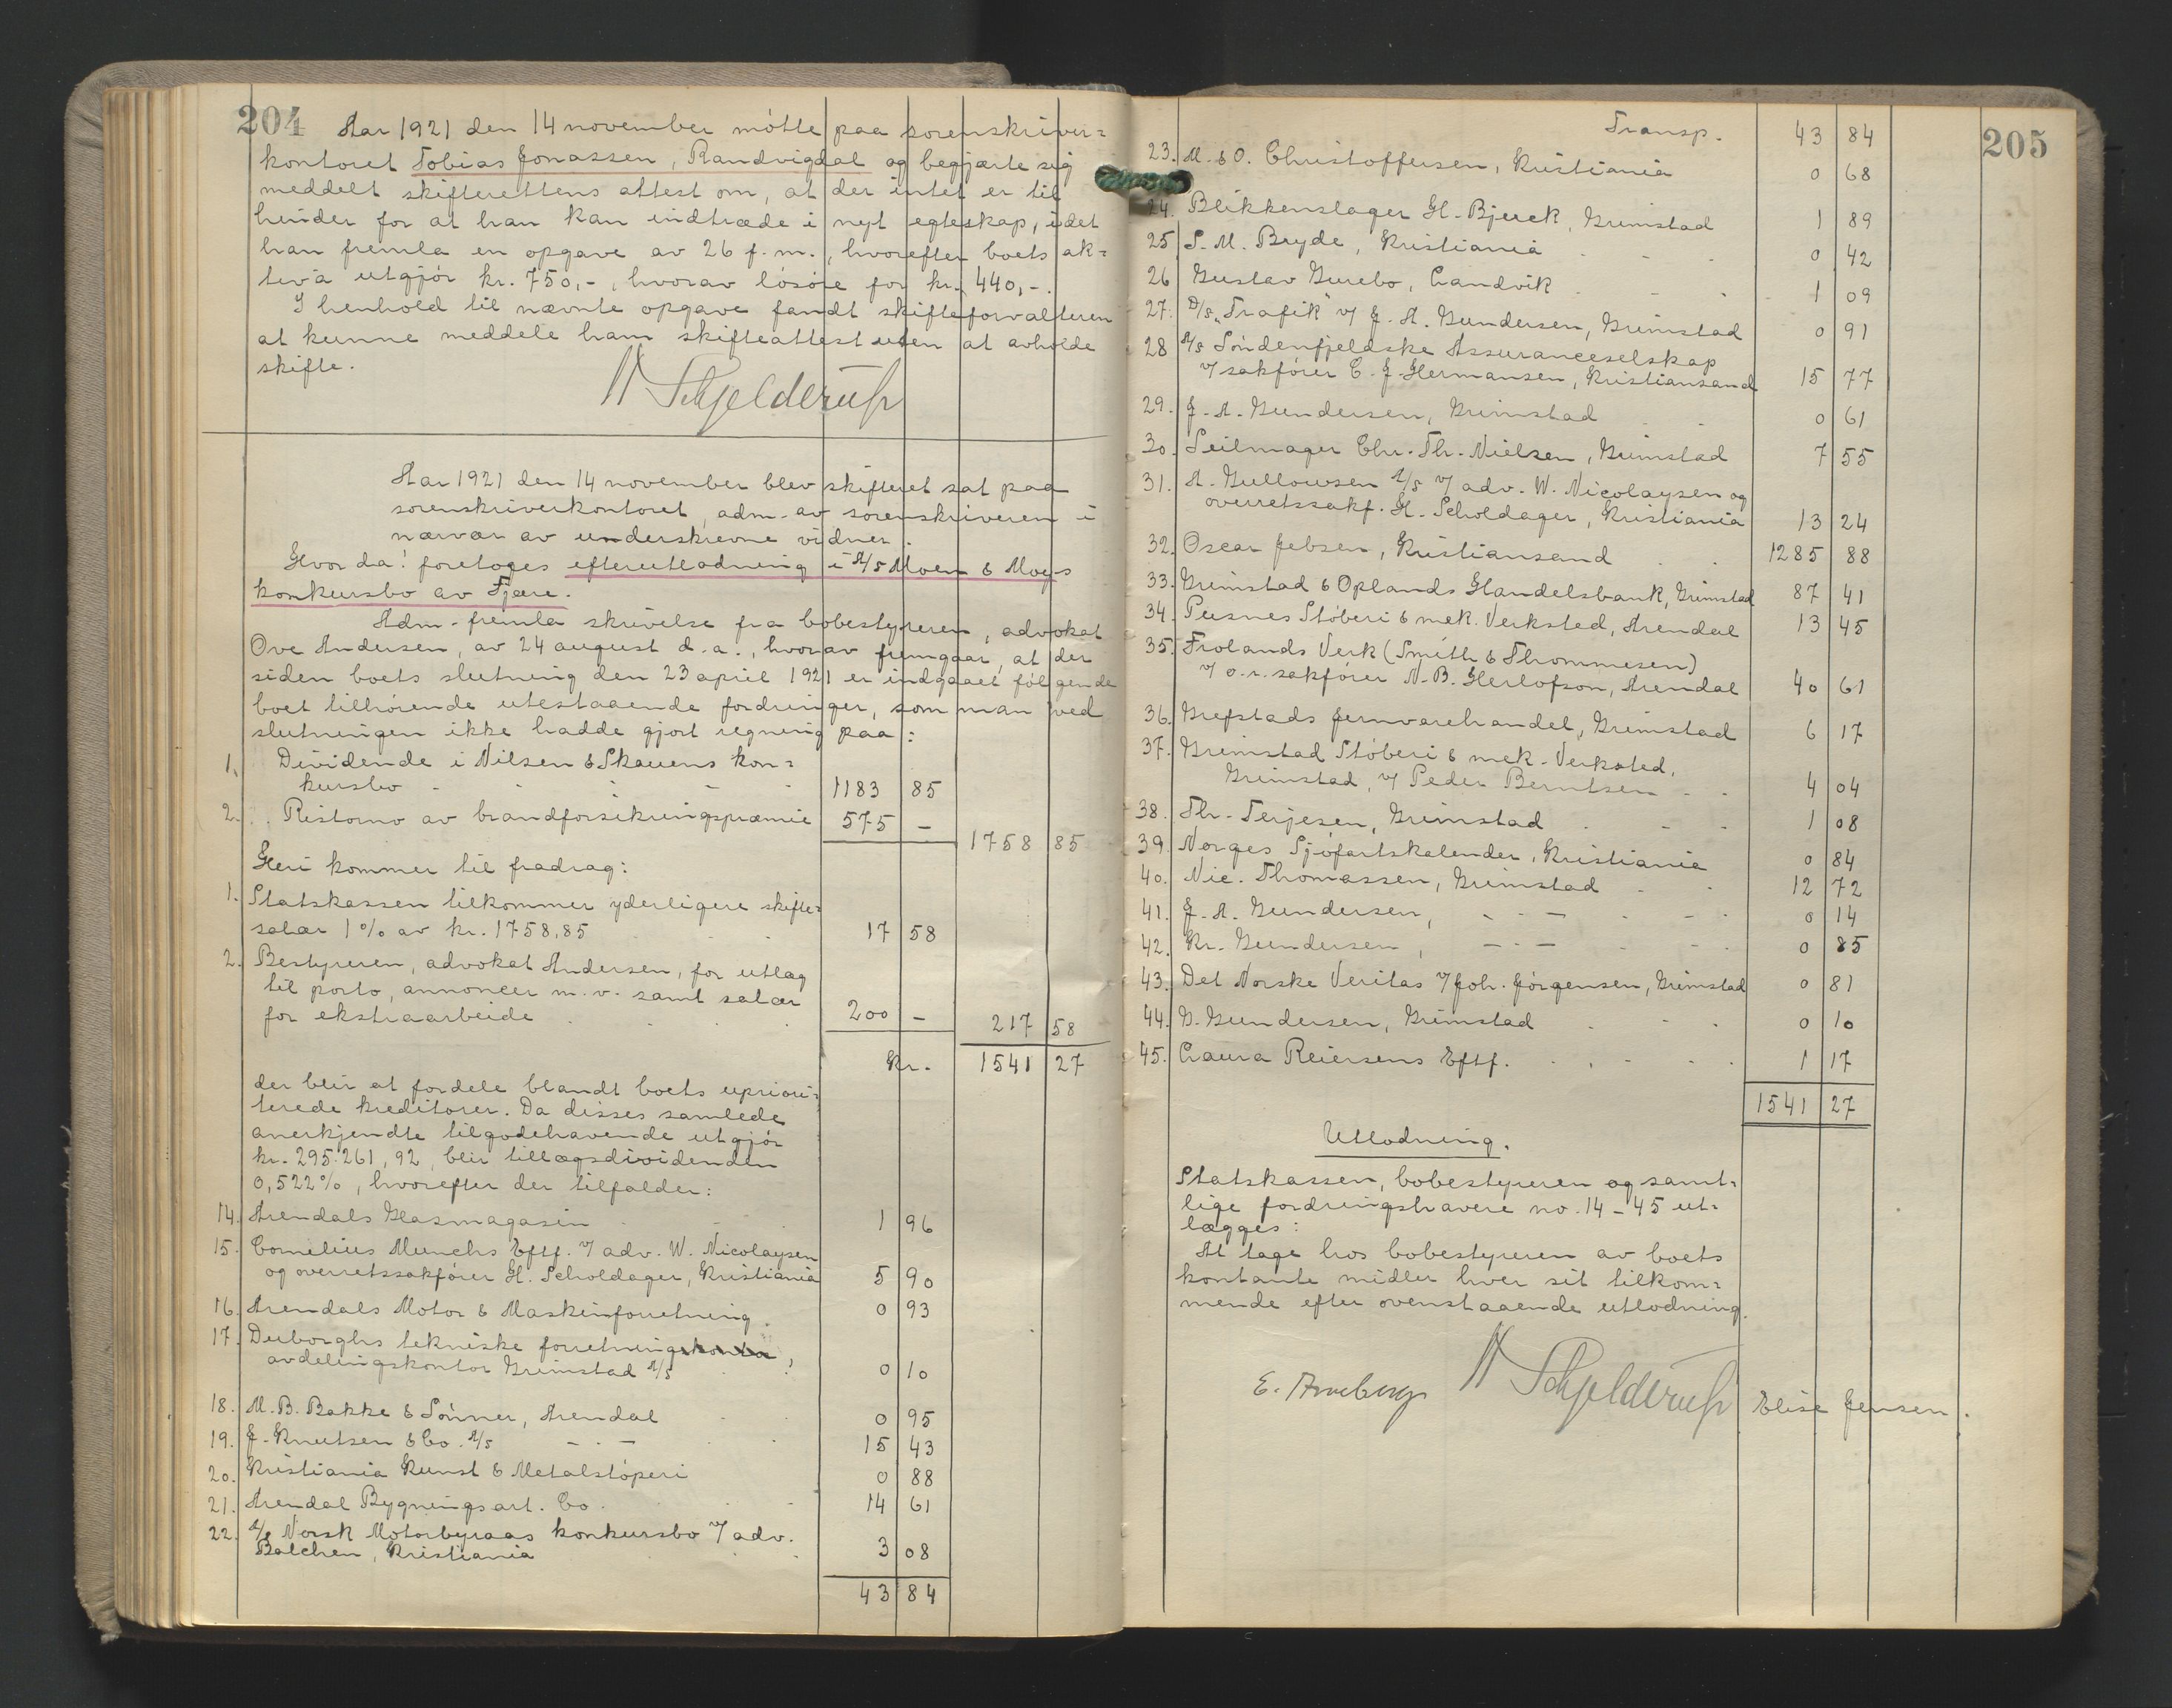 204
Aar 1921 den 14 november mötte paa sorenskriver=
kontoret Tobias Jonassen, Randvigdal og begjærte sig
meddelt skifterettens attest om, at der intet er til
hinder for at han kan indtræde i nyt egteskap, idet
han fremla en opgave av 26 f.m., hvorefter boets ak=
tiva utgjör kr. 750,-, hvorav lösöre for kr. 440,-.
I henhold til nævnte opgave fandt skifteforvalteren
at kunne meddele ham skifteattest uten at avholde
skifte.
Schjelderup
Aar 1921 den 14 november blev skifteret sat paa
sorenskriverkontoret, adm. av sorenskriveren i
nærvær av underskrevne vidner.
Hvor da: foretoges efterutlodning i A/S Moen & Moys
konkursbo av Fjære.
Adm. fremla skrivelse fra bobestyreren, advokat
Ove Andersen, av 24 august d.a., hvorav fremgaar, at der
siden boets slutning den 23 april 1921 er indgaaet fölgende
boet tilhörende utestaaende fordringer, som man ved
slutningen ikke hadde gjort regning paa:
1. Dividende i Nilsen & Skauens kon=
kursbo 1183 85
2. Ristorno av brandforsikringspræmie 575 - 1758 85
Heri kommer til fradrag:
1. Statskassen tilkommer yderligere skifte=
salær 1% av kr. 1758,85 17 58
2. Bestyreren, advokat Andersen, for utlæg
til porto, annoncer m.v. samt salær
for ekstraarbeide 200 - 217 58
Kr. 1541 27
der blir at fordele blandt boets upriori=
terede kreditorer. Da disses samlede
anerkjendte tilgodehavende utgjör
kr. 295.261,92, blir tillægsdividenden
0,522%, hvorefter der tilfalder:
14. Arendals Glasmagasin 1 96
15. Cornelius Munchs Eftf. v/ adv. W. Nicolaysen
og overretssakförer H. Scholdager, Kristiania 5 90
16. Arendals Motor & Maskinforretning 0 93
17. Duborghs tekniske forretningskontor,
avdelingskontor Grimstad A/S 0 10
18. M.B. Bakke & Sönner, Arendal 0 95
19. J. Knutsen & Co. A/S -·- 15 43
20. Kristiania Kunst & Metalstöperi 0 88
21. Arendal Bygningsart. Co. 14 61
22. A/S Norsk Motorbyraas konkursbo v/ adv.
Balchen, Kristiania 3 08
43 84
205
Transp. 43 84
23. M. & O. Christoffersen, Kristiania 0 68
24. Blikkenslager H. Bjuck, Grimstad 1 89
25. S.M. Bryde, Kristiania 0 42
26 Gustav Gurebo, Landvik 1 09
27. D/S "Trafik" v/ J.A. Gundersen, Grimstad 0 91
28 A/S Söndenfjeldske Assuranceselskap
v/ sakförer C.J. Hermansen, Kristiansand 15 77
29. J.A. Gundersen, Grimstad 0 61
30. Seilmager Chr. Th. Nielsen, Grimstad 7 55
31. A. Gullowsen A/S v/ adv. W. Nicolaysen og
overretssakf. H. Scholdager, Kristiania 13 24
32. Oscar Jebsen, Kristiansand 1285 88
33. Grimstad & Oplands Handelsbank, Grimstad 87 41
34. Pusnes Stöberi & mek. Verksted, Arendal 13 45
35. Frolands Verk (Smith & Thommesen)
v/ o.r.sakförer N.B. Herlofson, Arendal 40 61
36. Grefstads jernvarehandel, Grimstad 6 17
37. Grimstad Stöberi & mek. Verksted,
Grimstad, v/ Peder Berntsen 4 04
38. Th. Terjesen, Grimstad 1 08
39. Norges Sjöfartskalender, Kristiania 0 84
40. Nic. Thomassen, Grimstad 12 72
41. J.A. Gundersen, -·- 0 14
42. Kr. Gundersen, -·- 0 85
43. Det Norske Veritas v/ Joh. Jörgensen, Grimstad 0 81
44. G. Gundersen, Grimstad 0 10
45. Laura Reiersens Eftf. 1 17
1541 27
Utlodning.
Statskassen, bobestyreren og samt=
lige fordringshavere no. 14-45 ut=
lægges:
At tage hos bobestyreren av boets
kontante midler hver sit tilkom=
mende efter ovenstaaende utlodning.
E. Arneberg Schjelderup Elise Jensen.